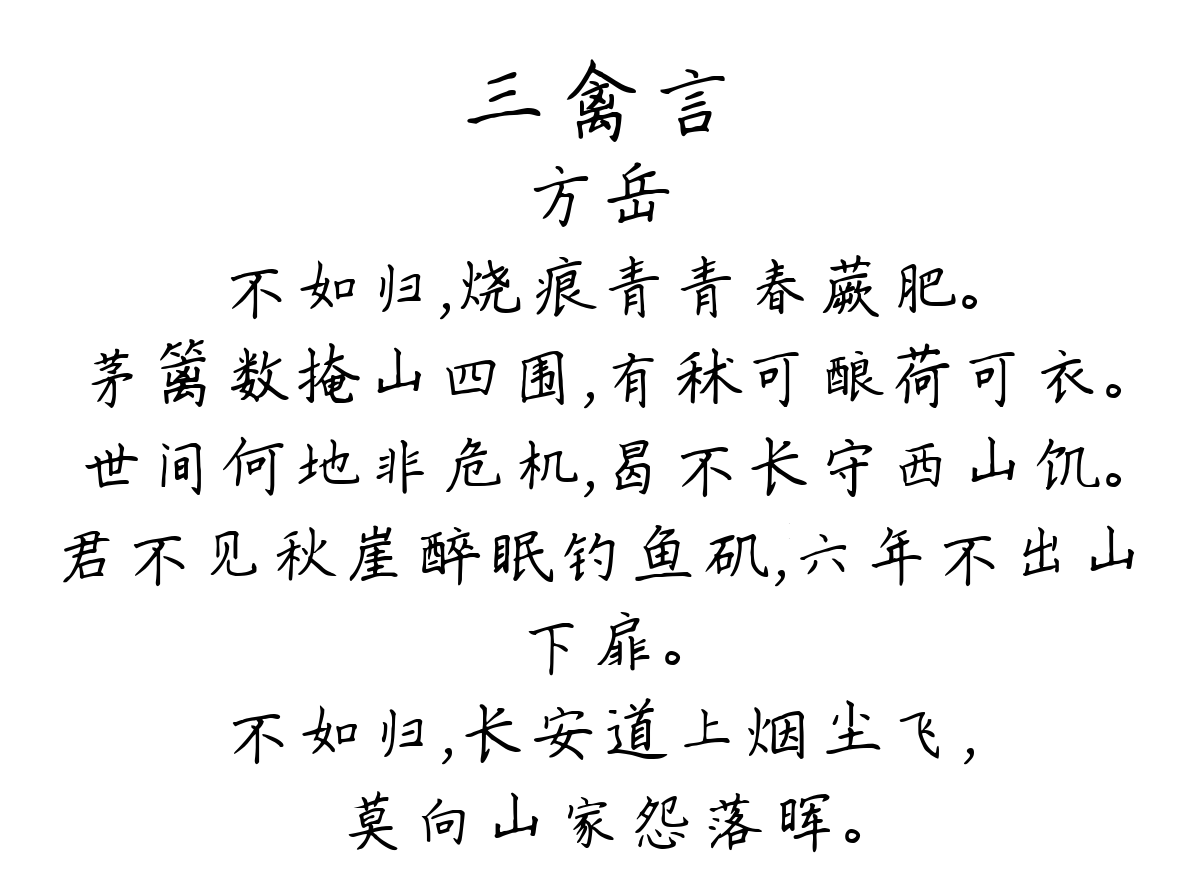 三禽言
方岳
不如归,烧痕青青春蕨肥。
茅篱数掩山四围,有秫可酿荷可衣。
世间何地非危机,曷不长守西山饥。
君不见秋崖醉眠钓鱼矶,六年不出山
下扉。
不如归,长安道上烟尘飞,
莫向山家怨落晖。